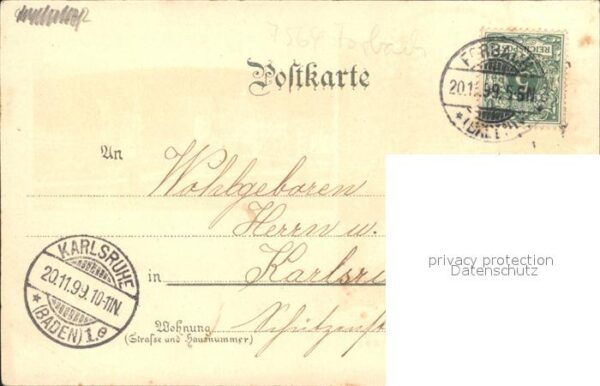 7564 Forbach
Postkarte
FORBACH
20.11.99.5-6N.
(BADEN)
REICHSPOST
5
An
Wohlgeboren
Herrn u.
in Karlsru
Wohnung Schützenst
(Straße und Hausnummer)
KARLSRUHE
20.11.99.10-11N.
* (BADEN) 1.e
privacy protection
Datenschutz